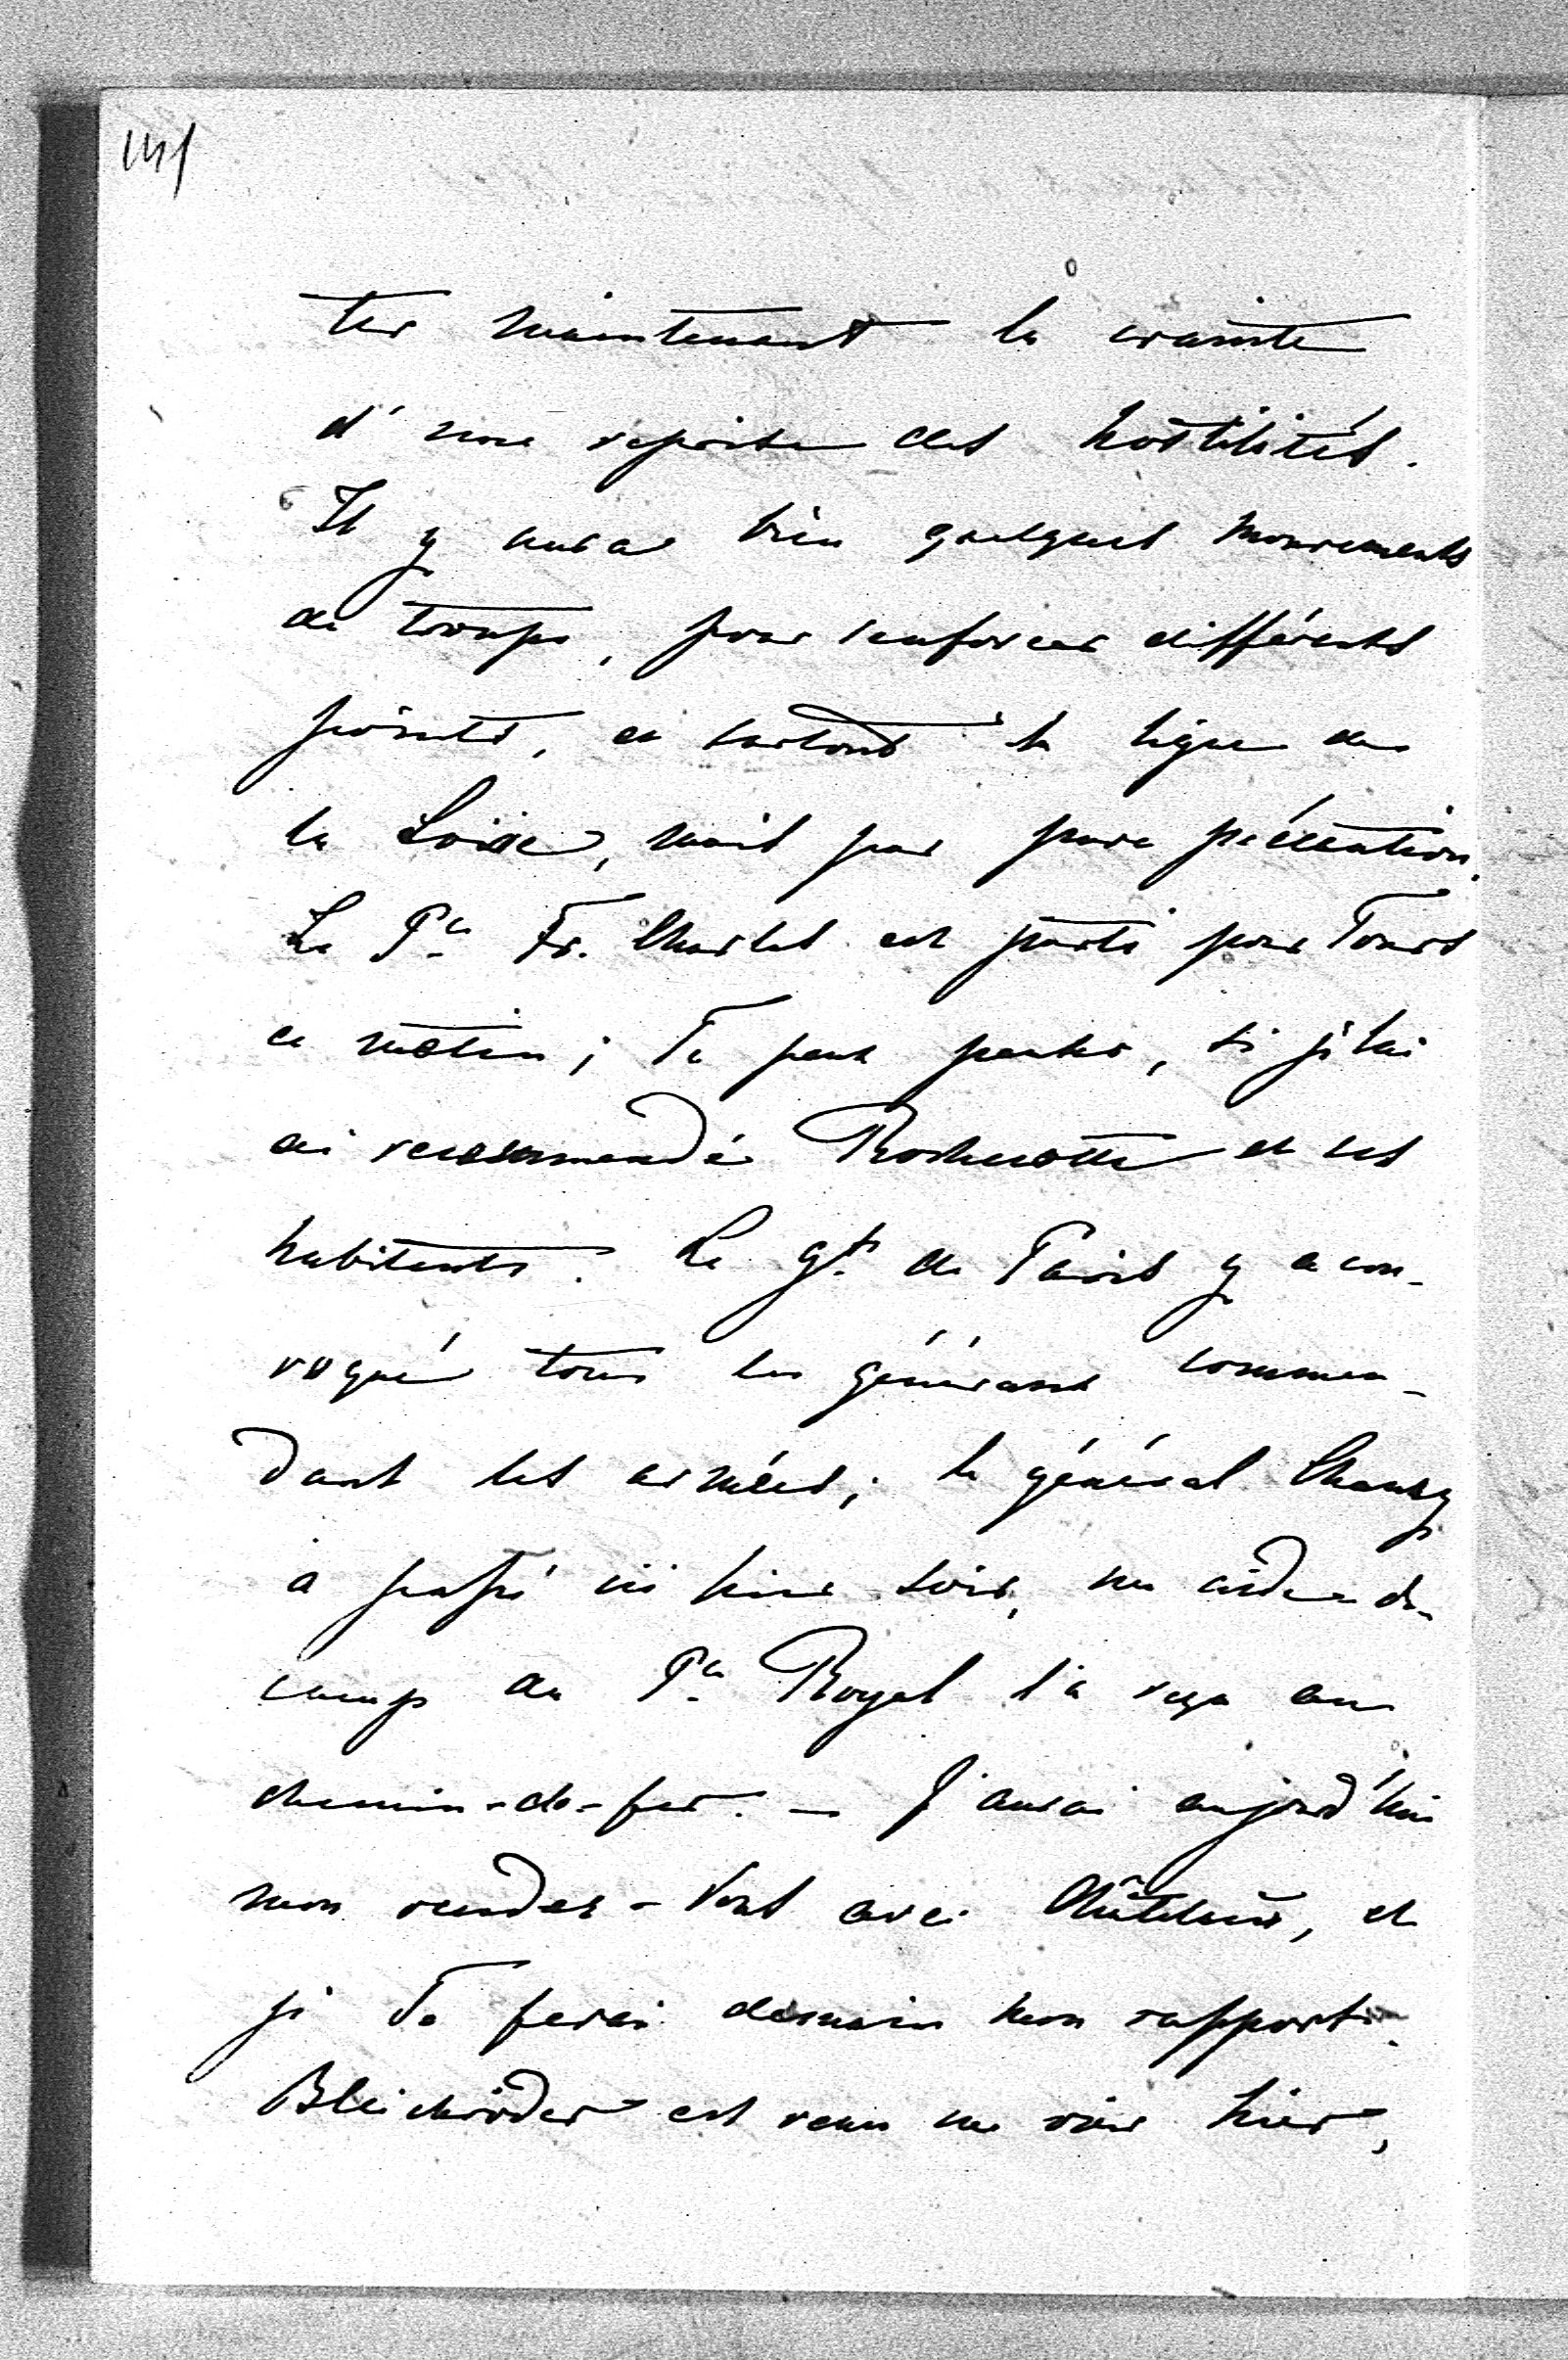 ter maintenant la crainte
d'une reprise des hostilités.
Il y aura bien quelques mouvements
de troupes, pour renforcer différents
points, et surtout la ligne de
la Loire, mais par pure précaution.
Le P^ce Fr. Charles est parti pour Tours
ce matin; Tu peux penser, si je lui
ai recommandé Rochecotte et ses
habitants. Le g^t de Paris y a con-
voqué tous les généraux comman-
dant les armées; le général Chanzy
a passé ici hier soir, un aide-de-
camp du P^ce Royal l'a reçu au
chemin-de-fer. — J'aurai aujourd'hui
mon rendez-vous avec, et
je Te ferai demain mon rapport.
Bleichröder est venu me voir hier,